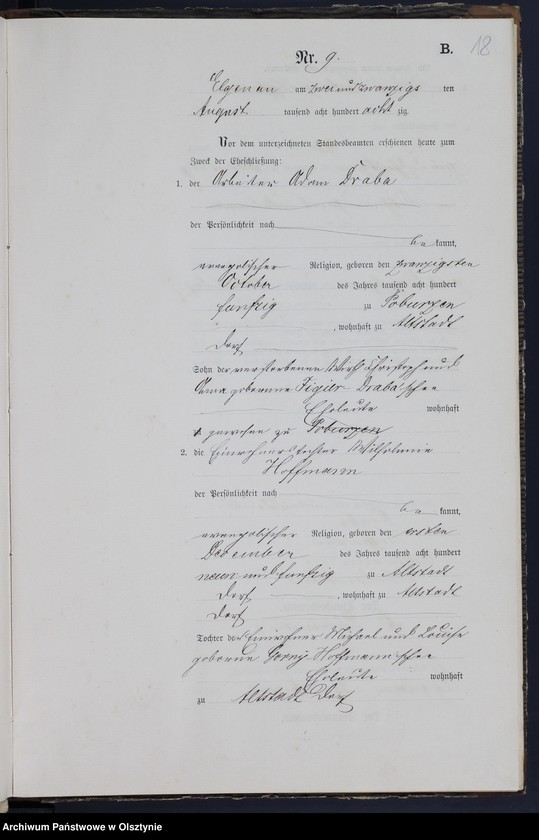 B. 18
Nr. 9.
Elgenau am zwei und zwanzigs ten
August tausend acht hundert acht zig.
Vor dem unterzeichneten Standesbeamten erschienen heute zum
Zweck der Eheschließung:
1. der Arbeiter Adam Draba
der Persönlichkeit nach
be kannt,
evangelischer Religion, geboren den zwanzigsten
October des Jahres tausend acht hundert
funfzig zu Poburzen
, wohnhaft zu Altstadt
Dorf
Sohn der verstorbenen Wirth Christoph und
geborene Figier Draba'schen
Eheleute wohnhaft
gewesen zu Poburzen
2. die Einwohnertochter Wilhelmine
Hoffmann
der Persönlichkeit nach
be kannt,
evangelischer Religion, geboren den ersten
December des Jahres tausend acht hundert
neun und funfzig zu Altstadt
Dorf , wohnhaft zu Altstadt
Dorf
Tochter der Einwohner Michael und Louise
geborene Gorny Hoffmann'schen
Eheleute wohnhaft
zu Altstadt Dorf
Archiwum Państwowe w Olsztynie